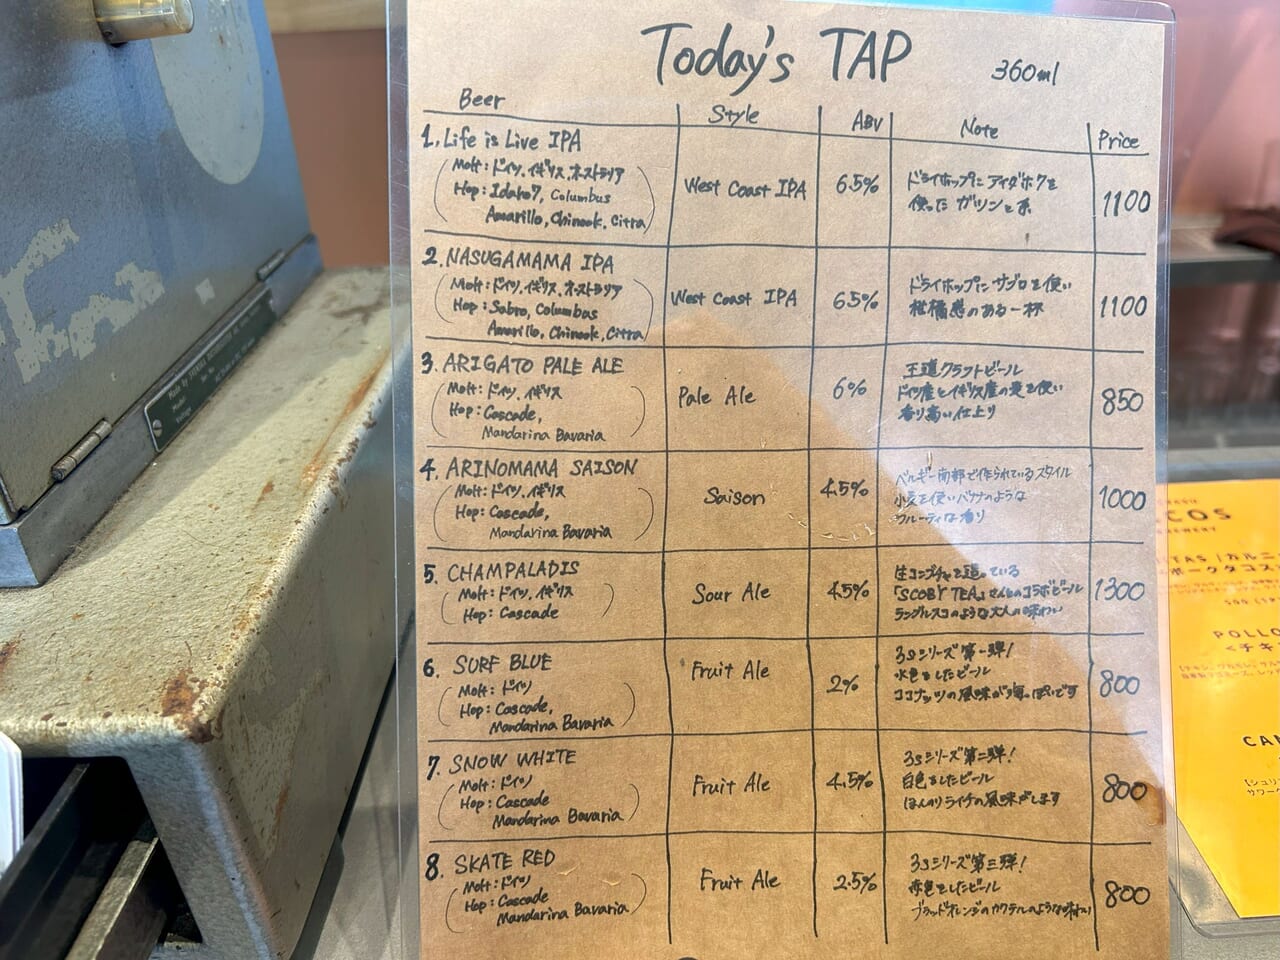 Today's TAP 360ml
Beer Style ABV Note Price
1. Life is Live IPA
Molt: ドイツ, イギリス, オーストラリア
Hop: Idaho7, Columbus
Amarillo, Chinook, Citra
West Coast IPA
6.5%
ドライホップにアイダホ7を
使ったガツンと系
1100
2. NASUGAMAMA IPA
Molt: ドイツ, イギリス, オーストラリア
Hop: Sabro, Columbus
Amarillo, Chinook, Citra
West Coast IPA
6.5%
ドライホップにサブロを使い
柑橘感のある一杯
1100
3. ARIGATO PALE ALE
Molt: ドイツ, イギリス
Hop: Cascade,
Mandarina Bavaria
Pale Ale
6%
王道クラフトビール
ドイツ産とイギリス産の麦を使い
香り高い仕上り
850
4. ARINOMAMA SAISON
Molt: ドイツ, イギリス
Hop: Cascade,
Mandarina Bavaria
Saison
4.5%
ベルギー南部で作られているスタイル
小麦を使いバナナのような
フルーティな香り
1000
5. CHAMPALADIS
Molt: ドイツ, イギリス
Hop: Cascade
Sour Ale
4.5%
生コンブチャを造っている
「SCOBY TEA」さんとのコラボビール
ラングルスコのような大人の味わい
1300
6. SURF BLUE
Molt: ドイツ
Hop: Cascade,
Mandarina Bavaria
Fruit Ale
2%
3sシリーズ第一弾!
水色をしたビール
ココナッツの風味が海っぽいです
800
7. SNOW WHITE
Molt: ドイツ
Hop: Cascade
Mandarina Bavaria
Fruit Ale
4.5%
3sシリーズ第二弾!
白色をしたビール
ほんのりライチの風味がします
800
8. SKATE RED
Molt: ドイツ
Hop: Cascade
Mandarina Bavaria
Fruit Ale
2.5%
3sシリーズ第三弾!
赤色をしたビール
ブラッドオレンジのカクテルのような味わい
800
COS
TAS /カルニ
ポークタコス
POLLO
<チキ
CAR